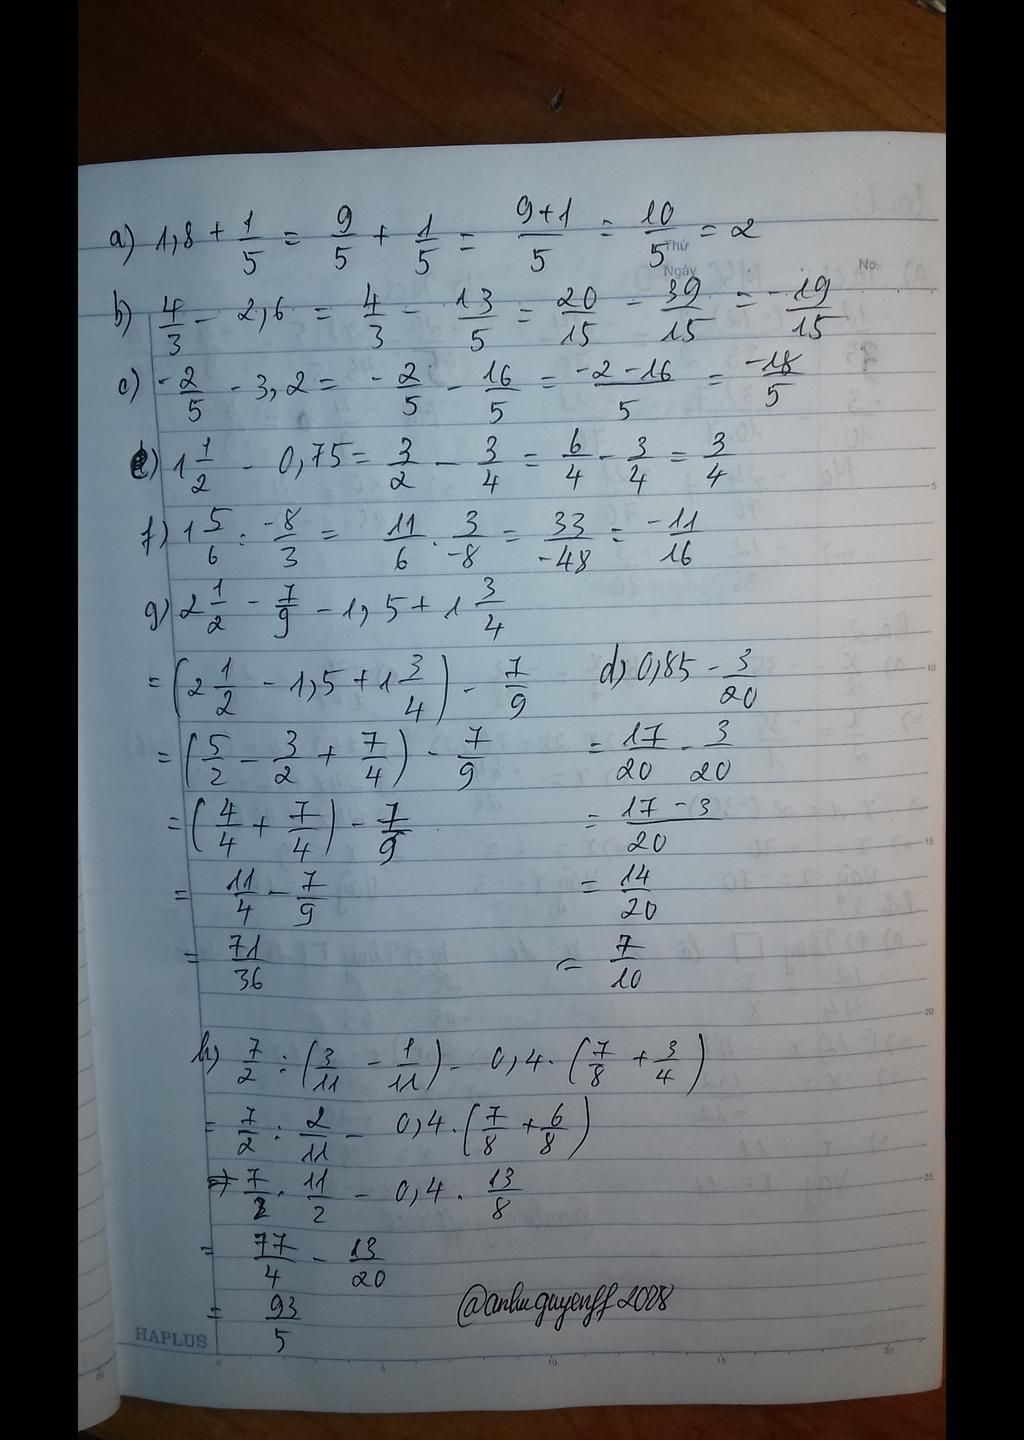 a) 1,8 + 1/5 = 9/5 + 1/5 = (9+1)/5 = 10/5 = 2
Thứ
Ngày
No.
b) 4/3 - 2,6 = 4/3 - 13/5 = 20/15 - 39/15 = -19/15
c) -2/5 - 3,2 = -2/5 - 16/5 = (-2-16)/5 = -18/5
e) 1 1/2 - 0,75 = 3/2 - 3/4 = 6/4 - 3/4 = 3/4
f) 1 5/6 : -8/3 = 11/6 . 3/-8 = 33/-48 = -11/16
g) 2 1/2 - 7/9 - 1,5 + 1 3/4
= (2 1/2 - 1,5 + 1 3/4) - 7/9
= (5/2 - 3/2 + 7/4) - 7/9
= (4/4 + 7/4) - 7/9
= 11/4 - 7/9
= 71/36
d) 0,85 - 3/20
= 17/20 - 3/20
= (17-3)/20
= 14/20
= 7/10
h) 7/2 : (3/11 - 1/11) - 0,4 . (7/8 + 3/4)
= 7/2 : 2/11 - 0,4 . (7/8 + 6/8)
= 7/2 . 11/2 - 0,4 . 13/8
= 77/4 - 13/20
= 93/5
@anhnguyenff2008
HAPLUS
0 5 10 15 20
5
10
15
20
25